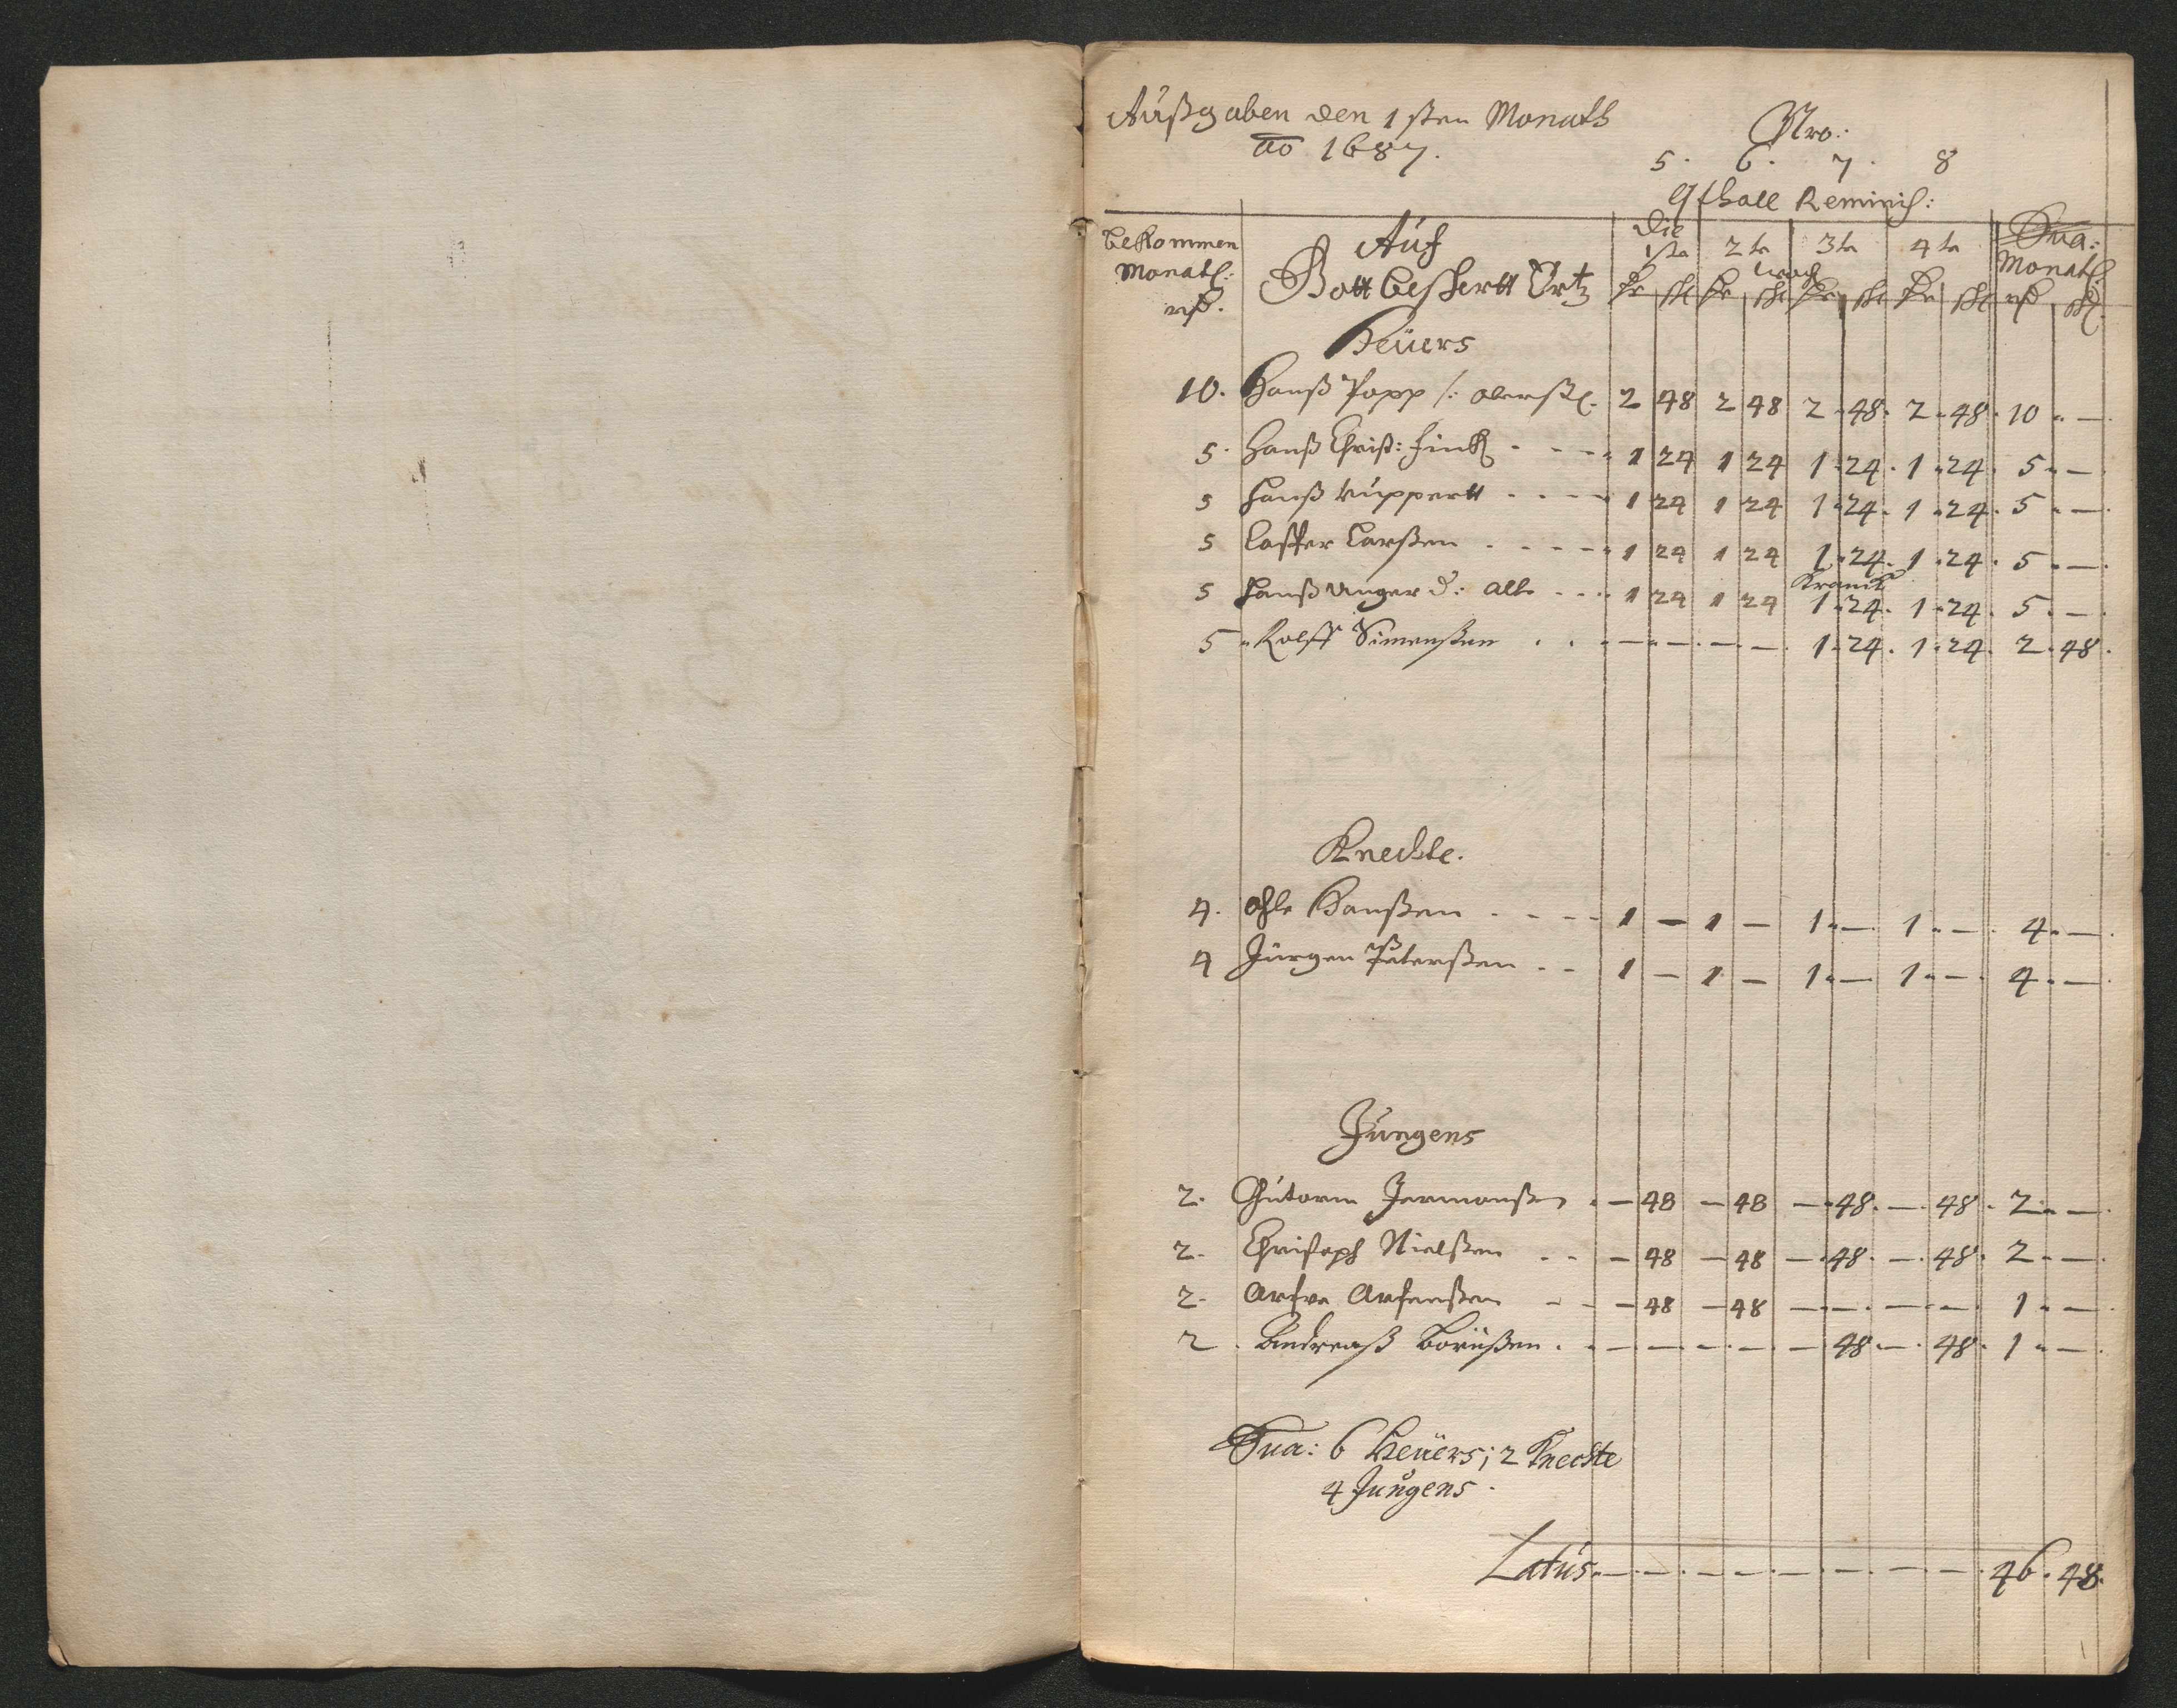 Außgaben den 1sten Monath
ao 1687.
Nro:
5. 6. 7. 8
Qthall Reminisc:
Bekommen Monatl: rd.
Auf Gott beschertt Ertz
Die 1ste 2te 3te 4te Woch
Sua: Monatl
Heüers
10. Hanß Popp /: oberstl. 2 48 2 48 2 48. 2 48. 10 —
5. Hanß Christ: Finck - - - 1 24 1 24 1 24. 1 24. 5 —
5 Hanß Ruppertt - - - 1 24 1 24 1 24. 1 24. 5 —
5 Casper Larßen - - - 1 24 1 24 1 24. 1 24. 5 —
Kranck
5 Hanß Unger d: alte - - 1 24 1 24 1 24. 1 24. 5 —
5 Rolff Simenßen . . — — — — 1 24. 1 24. 2 48.
Knechte.
4. Ohle Hanßen - - - - 1 — 1 — 1 — 1 — 4 —
4 Jürgen Peterßen - - 1 — 1 — 1 — 1 — 4 —
Jungens
2. Gutorm Jermonßen — 48 — 48 — 48. — 48. 2 —
2. Christoph Nielßen - - — 48 — 48 — 48. — 48. 2 —
2. Arfve Arfenßen - - — 48 — 48 — — — — 1 —
2. Andreaß Boräßen. — — — — — 48 — 48. 1 —
Sua: 6 Heüers; 2 Knechte
4 Jungens.
Latus — — — — — — — — 46. 48.